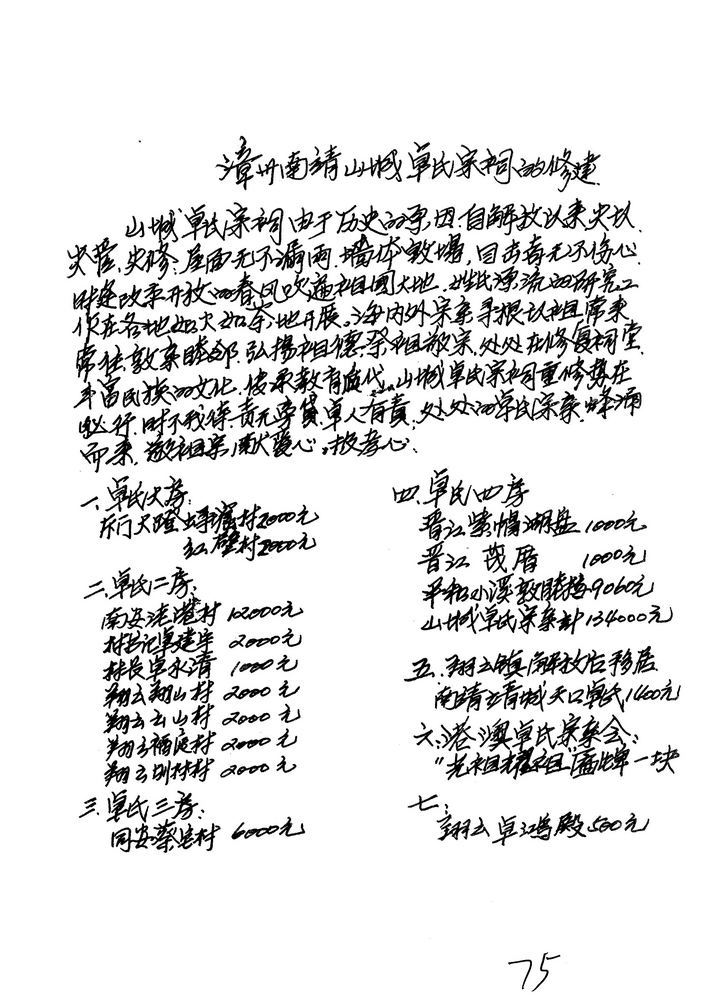 漳州南靖山城卓氏宗祠的修建
山城卓氏宗祠由于历史的原因.自解放以来失以
失管,失修.屋面无不漏雨.墙体敦塌,目击者无不伤心
时逢改革开放的春风吹遍祖国大地.姓氏源流的研究工
作在各地如火如荼地开展。海内外宗亲寻根认祖常来
常往敦亲睦邻.弘扬祖德.祭祖敬宗.处处在修复祠堂
丰富民族的文化.传承教育后代.山城卓氏宗祠重修势在
必行.时不我待.责无旁贷.卓人有责.处处的卓氏宗亲.蜂涌
而来.敬祖宗,献爱心,报孝心.
一.卓氏大房:
村2000元
红壁村2000元
二.卓氏二房:
南安港村 12000元
村书记卓建华 2000元
村长卓永清 1000元
翔云翔山村 2000元
翔云云山村 2000元
翔云福庭村 2000元
翔云圳林村 2000元
三.卓氏三房:
同安蔡宅村 6000元
四.卓氏四房
晋江紫帽湖盘 1000元
晋江 茂厝 1000元
平和小溪敦睦 9060元
山城卓氏宗亲计 134000元
五.翔云镇解放后移居
南靖山城天口卓氏1400元
六.港澳卓氏宗亲会:
"光祖耀祖匾牌一块
七:
翔云卓 殿 500元
75